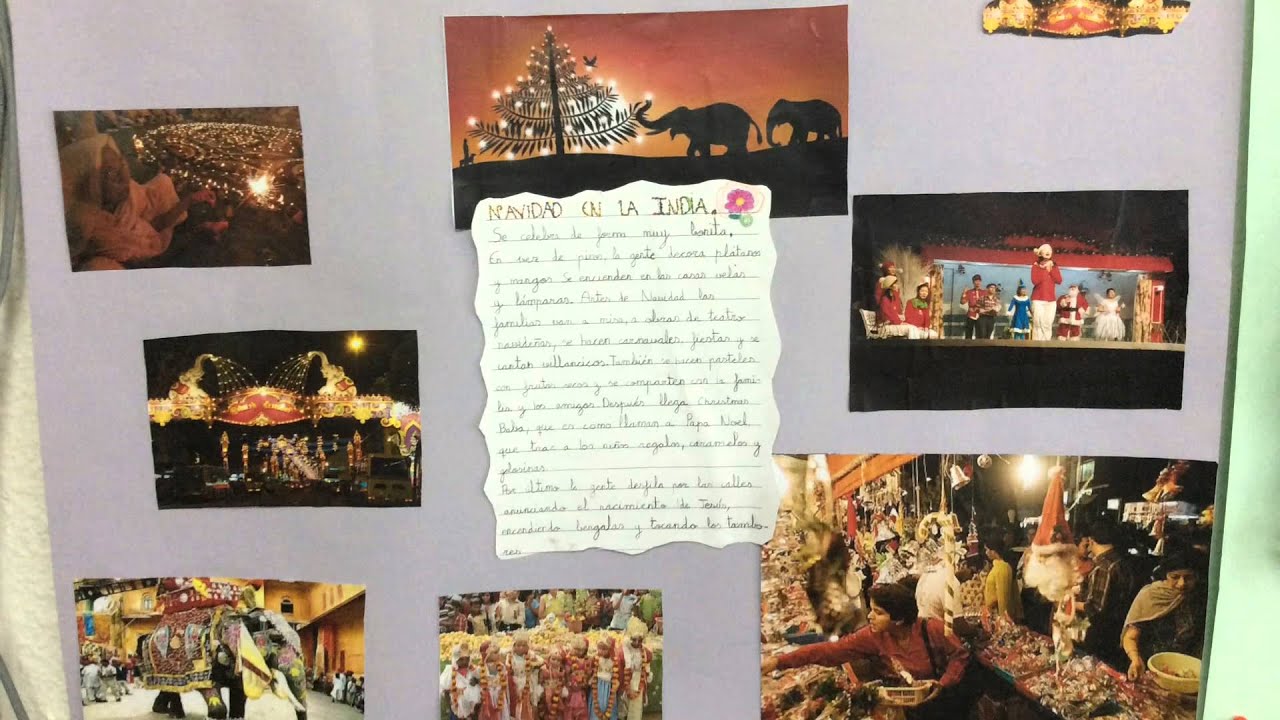 NAVIDAD EN LA INDIA.
Se celebra de forma muy bonita.
En vez de pinos, la gente decora plátanos
y mangos. Se encienden en las casas velas
y lámparas. Antes de Navidad las
familias van a misa, a obras de teatro
navideñas, se hacen carnavales, fiestas y se
cantan villancicos. También se hacen pasteles
con frutos secos y se comparten con la fami-
lia y los amigos. Después llega Christmas
Baba, que es como llaman a Papa Noel,
que trae a los niños regalos, caramelos y
golosinas.
Por último la gente desfila por las calles
anunciando el nacimiento de Jesús,
encendiendo bengalas y tocando los tambo-
res.